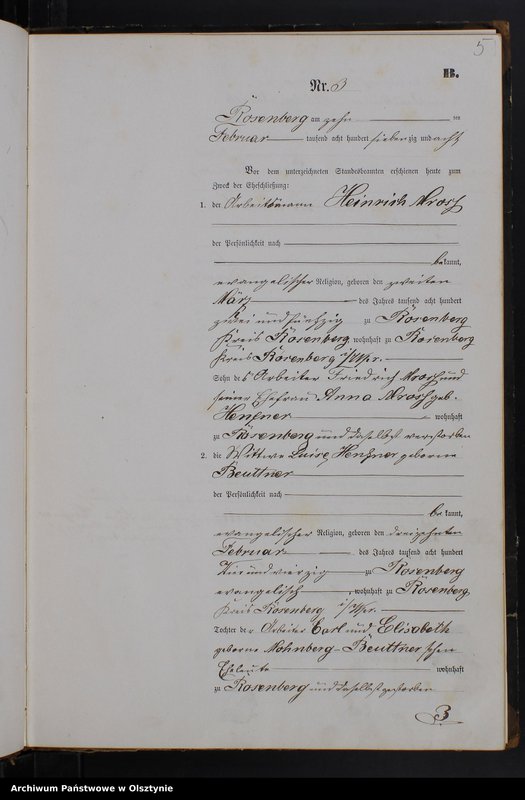 5
B.
Nr. 3
Rosenberg am zehn ten
Februar tausend acht hundert siebenzig und acht
Vor dem unterzeichneten Standesbeamten erschienen heute zum
Zweck der Eheschließung:
1. der Arbeitsmann Heinrich Mrosz
der Persönlichkeit nach
bekannt,
evangelischer Religion, geboren den zweiten
März des Jahres tausend acht hundert
zwei und fünfzig zu Rosenberg
Kreis Rosenberg wohnhaft zu Rosenberg
Kreis Rosenberg i/Wpr.
Sohn des Arbeiter Friedrich Mrosz und
seiner Ehefrau Anna Mrosz geb.
wohnhaft
zu Rosenberg und daselbst verstorben
2. die Wittwe Luise geborne
Beuttner
der Persönlichkeit nach
bekannt,
evangelischer Religion, geboren den dreizehnten
Februar des Jahres tausend acht hundert
Vier und vierzig zu Rosenberg
evangelisch, wohnhaft zu Rosenberg,
Kreis Rosenberg i/Wpr.
Tochter der Arbeiter Carl und Elisabeth
geborne Mohnberg-Beuttner'schen
Eheleute wohnhaft
zu Rosenberg und daselbst gestorben
3
Archiwum Państwowe w Olsztynie